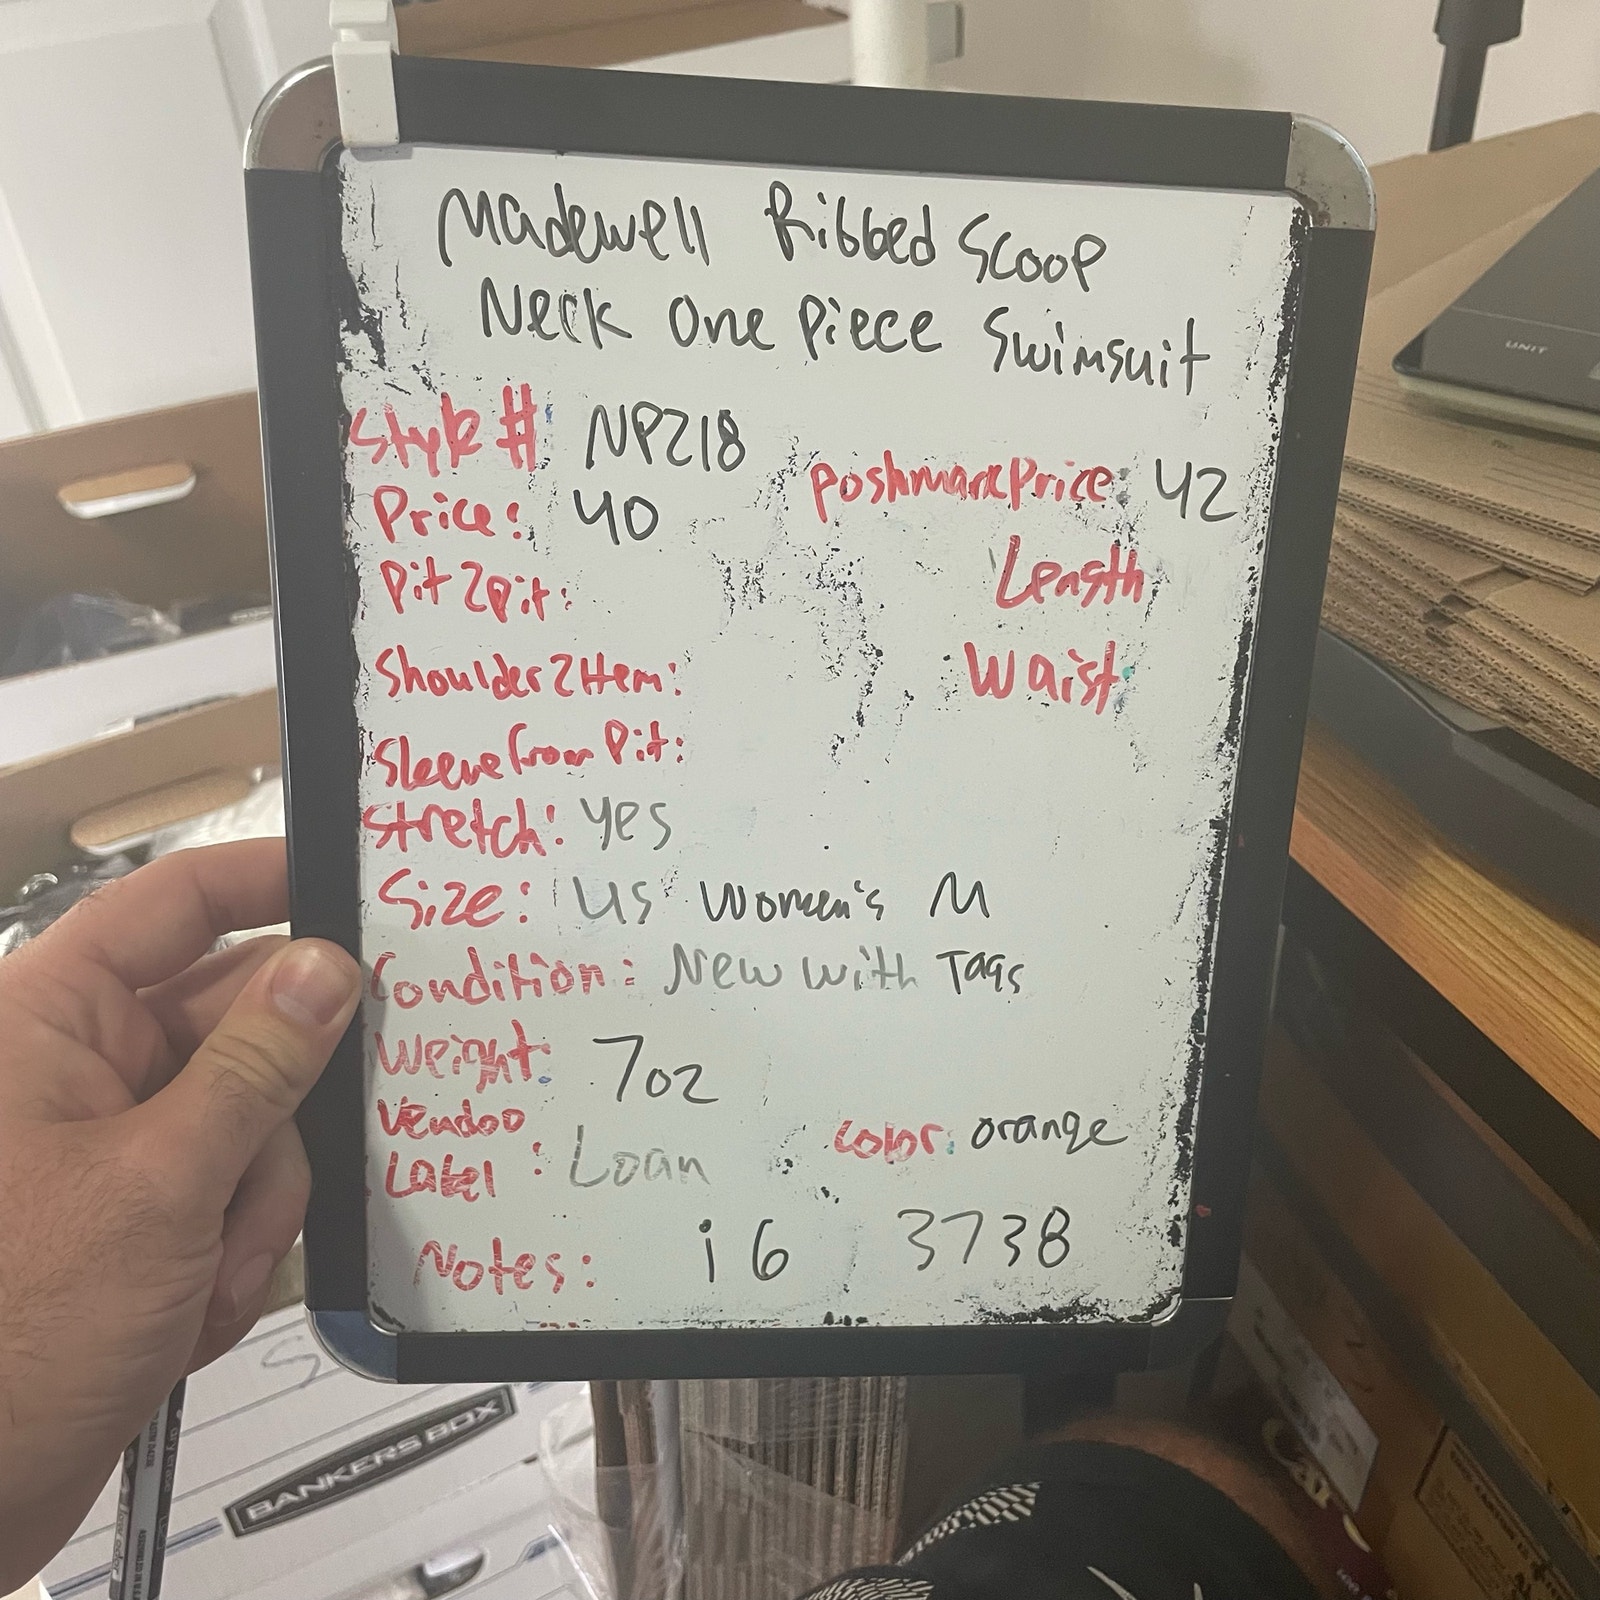 Madewell Ribbed Scoop
Neck One Piece Swimsuit
Style # NP218
Price: 40
Poshmark Price: 42
Pit2Pit:
Length
Shoulder2Hem:
Waist:
Sleeve from Pit:
Stretch: yes
Size: US Women's M
Condition: New with Tags
Weight: 7oz
Vendoo
Label: Loan
color: orange
Notes: i6 3738
UNIT
S
BANKERS BOX